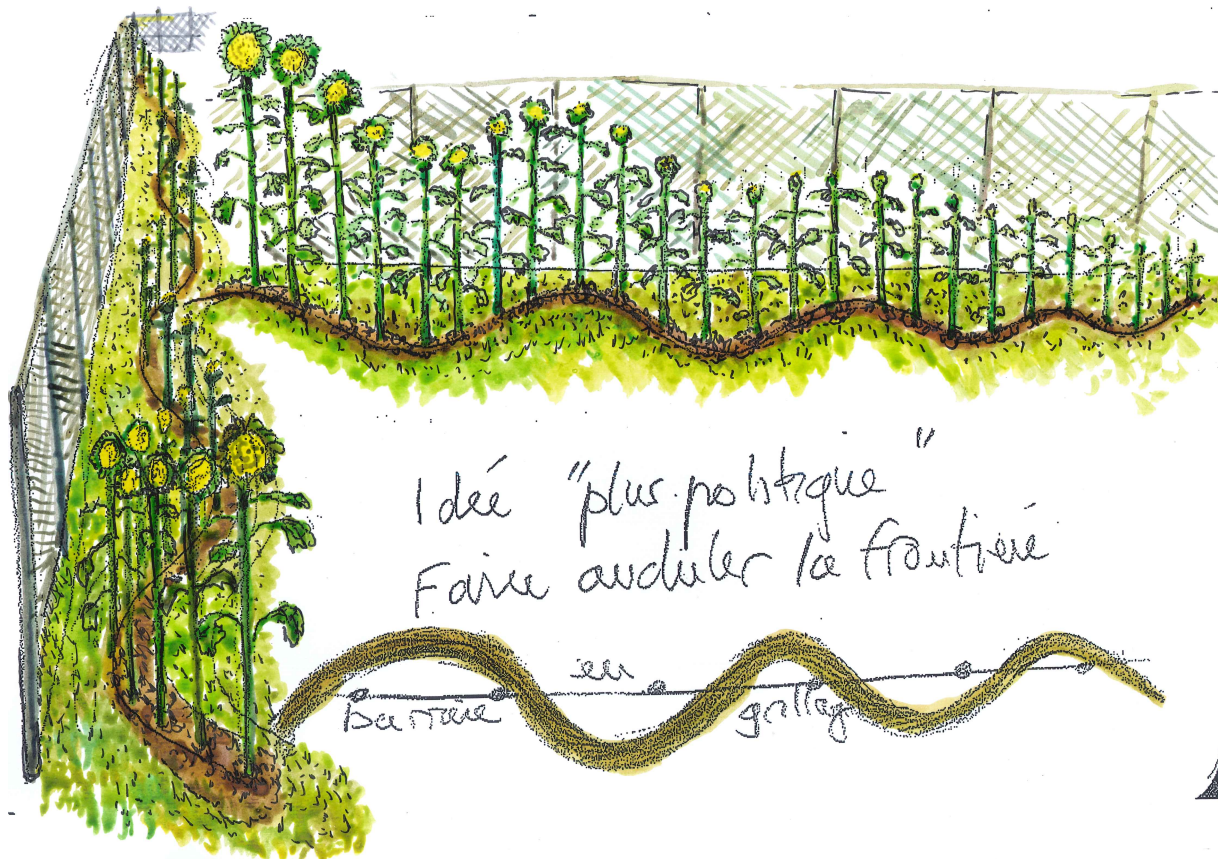 Idée "plus politique"
Faire onduler la frontière
Barrière en grillage